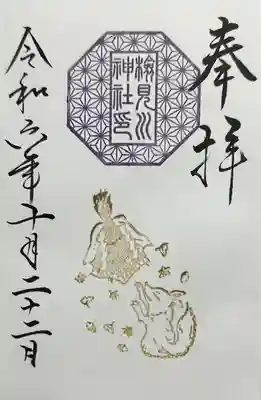 奉拝
検見川
神社印
令和六年十月二十二日